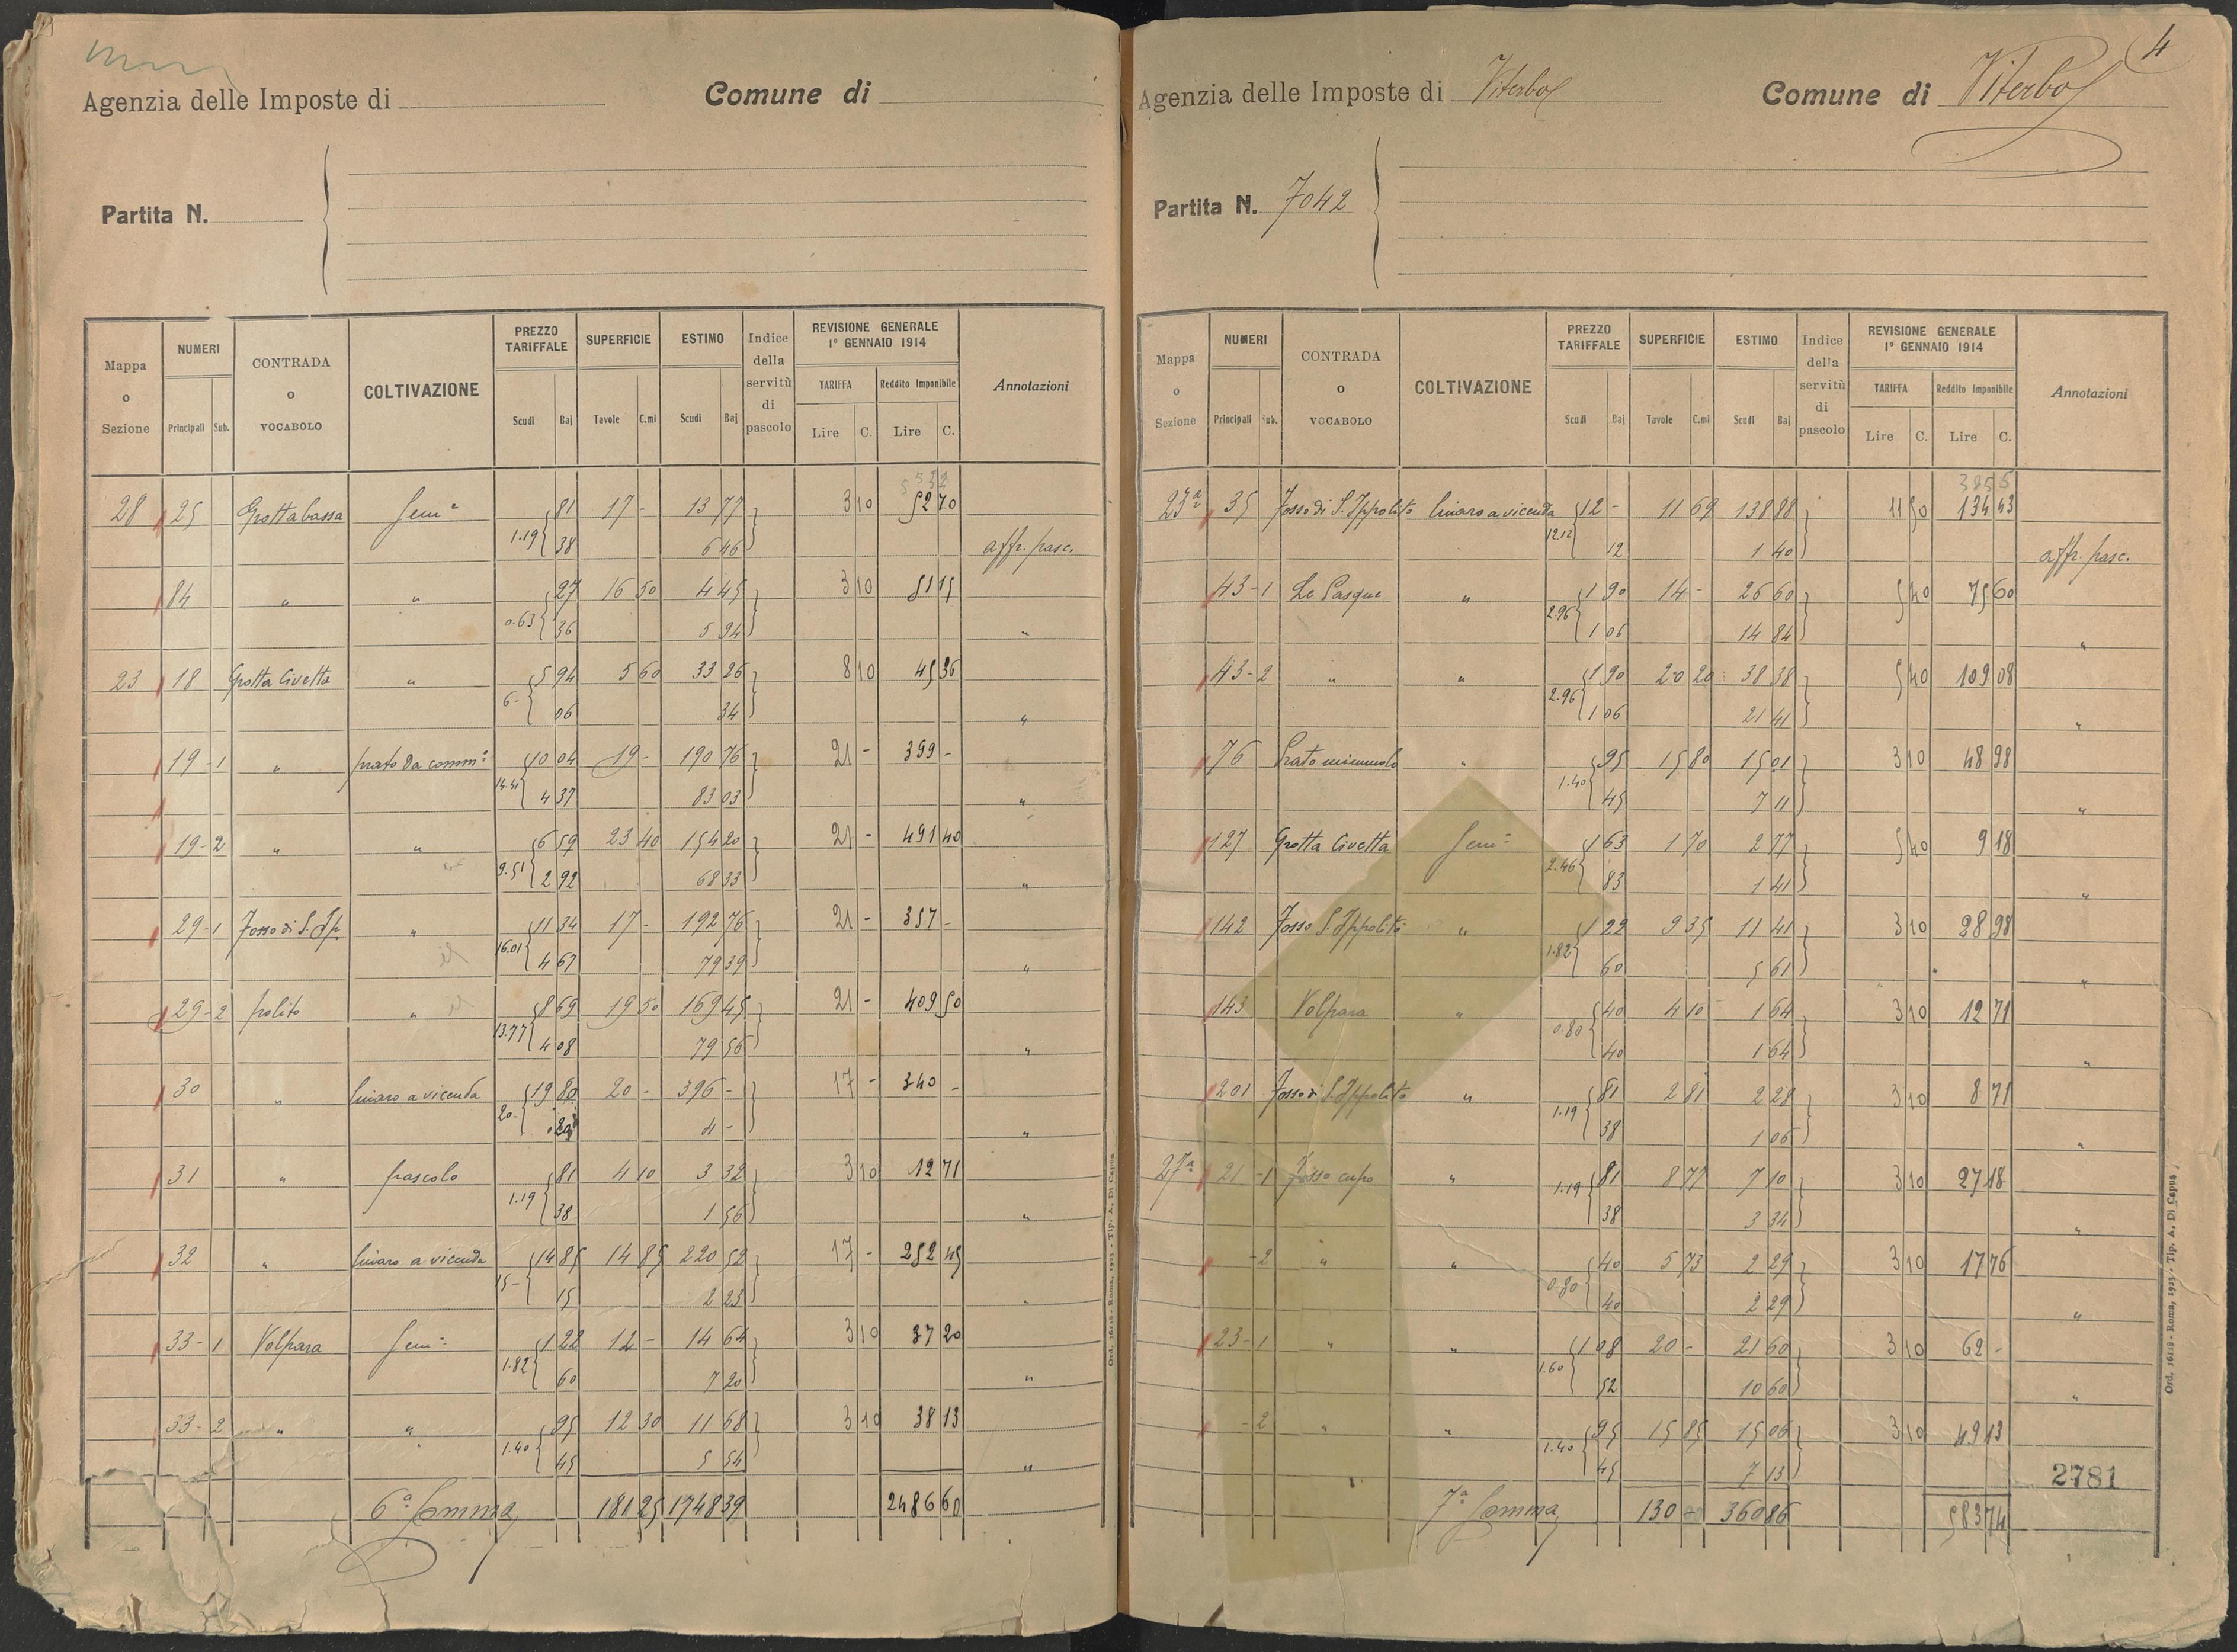 Agenzia delle Imposte di Comune di
Partita N.
Mappa o Sezione NUMERI Principali Sub. CONTRADA o VOCABOLO COLTIVAZIONE PREZZO TARIFFALE Scudi Baj SUPERFICIE Tavole C.mi ESTIMO Scudi Baj Indice della servitù di pascolo REVISIONE GENERALE 1° GENNAIO 1914 TARIFFA Lire C. Reddito Imponibile Lire C. Annotazioni
28 25 Grotta bassa Sem.° 81 17 - 13 77 3 10 52 70
1.19 38 6 46 aff. pasc.
84 " " 27 16 50 4 45 3 10 51 15
0.63 36 5 94 "
23 18 Grotta Civetta " 5 94 5 60 33 26 8 10 45 36
6- 06 34 "
19-1 " prato da comm.° 10 04 19 - 190 76 21 - 399 -
14.41 4 37 83 03 "
19-2 " " 6 59 23 40 154 20 21 - 491 40
9.51 2 92 68 33 "
29-1 Fosso di S. Ip " 11 34 17 - 192 76 21 - 357 -
16.01 4 67 79 39 "
29-2 polito " 8 69 19 50 169 45 21 - 409 50
4 08 79 56 "
30 " linaro a vicenda 19 80 20 - 396 - 17 - 340 -
20- 20 4 - "
31 " pascolo 81 4 10 3 32 3 10 12 71
1.19 38 1 56 "
32 " linaro a vicenda 14 85 14 85 220 52 17 - 252 45
15- 15 2 23 "
33-1 Volpara Sem.° 1 22 12 - 14 64 3 10 37 20
1.82 60 7 20 "
33-2 " " 95 12 30 11 68 3 10 38 13
1.40 45 5 54 "
6ª Somma 181 25 1748 39 2486 60
Ord. 16118 - Roma, 1925 - Tip. A. Di Capua
4
Agenzia delle Imposte di Viterbo Comune di Viterbo
Partita N. 7042
Mappa o Sezione NUMERI Principali Sub. CONTRADA o VOCABOLO COLTIVAZIONE PREZZO TARIFFALE Scudi Baj SUPERFICIE Tavole C.mi ESTIMO Scudi Baj Indice della servitù di pascolo REVISIONE GENERALE 1° GENNAIO 1914 TARIFFA Lire C. Reddito Imponibile Lire C. Annotazioni
23ª 35 Fosso di S. Ippolito linaro a vicenda 12 - 11 69 138 88 11 50 134 43
12.12 12 1 40 aff. pasc.
43-1 Le Pasque " 1 90 14 - 26 60 5 40 75 60
2.96 1 06 14 84 "
43-2 " " 1 90 20 20 38 38 5 40 109 08
2.96 1 06 21 41 "
76 Prato " 95 15 80 15 01 3 10 48 98
1.40 45 7 11 "
127 Grotta Civetta Sem.° 1 63 1 70 2 77 5 40 9 18
2.46 83 1 41 "
142 Fosso S. Ippolito " 1 22 9 35 11 41 3 10 28 98
1.82 60 5 61 "
143 Volpara " 40 4 10 1 64 3 10 12 71
0.80 40 1 64 "
201 Fosso di S. Ippolito " 81 2 81 2 28 3 10 8 71
1.19 38 1 06 "
27ª 21-1 Fosso cupo " 81 8 77 7 10 3 10 27 18
1.19 38 3 34 "
-2 " " 40 5 73 2 29 3 10 17 76
0.80 40 2 29 "
23-1 " " 1 08 20 - 21 60 3 10 62 -
1.60 52 10 60 "
-2 " " 95 15 85 15 06 3 10 49 13
1.40 45 7 13
2781
7ª Somma 130 360 86 583 74
Ord. 16118 - Roma, 1925 - Tip. A. Di Capua